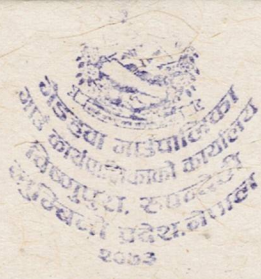 गैडहवा गाउँपालिका
गाउँ कार्यपालिकाको कार्यालय
विष्णुपुरा, रुपन्देही
लुम्बिनी प्रदेश, नेपाल
२०७३